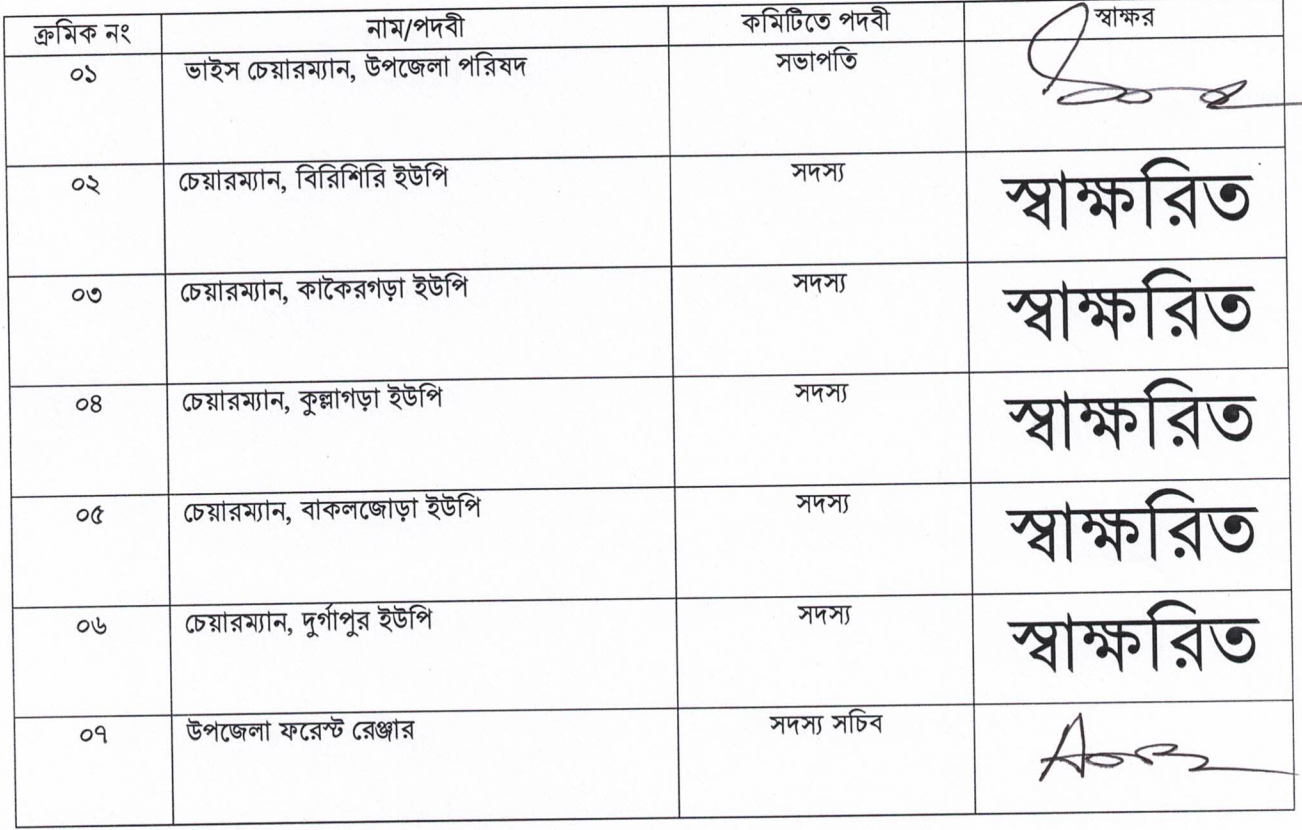 ক্রমিক নং নাম/পদবী কমিটিতে পদবী স্বাক্ষর
০১ ভাইস চেয়ারম্যান, উপজেলা পরিষদ সভাপতি
০২ চেয়ারম্যান, বিরিশিরি ইউপি সদস্য স্বাক্ষরিত
০৩ চেয়ারম্যান, কাকৈরগড়া ইউপি সদস্য স্বাক্ষরিত
০৪ চেয়ারম্যান, কুল্লাগড়া ইউপি সদস্য স্বাক্ষরিত
০৫ চেয়ারম্যান, বাকলজোড়া ইউপি সদস্য স্বাক্ষরিত
০৬ চেয়ারম্যান, দুর্গাপুর ইউপি সদস্য স্বাক্ষরিত
০৭ উপজেলা ফরেস্ট রেঞ্জার সদস্য সচিব